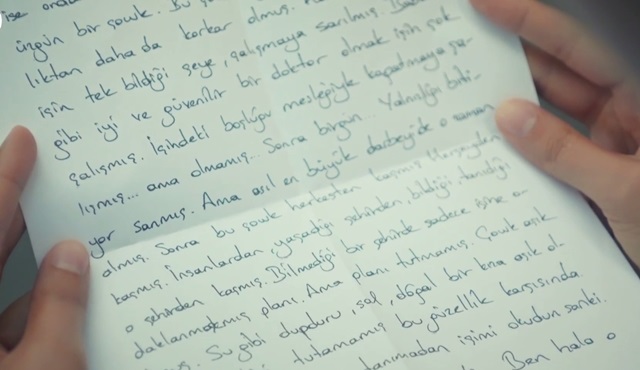 ise
üzgün bir çocuk. Bu
lıktan daha da korkar olmuş.
için tek bildiği şeye, çalışmaya sarılmış.
gibi iyi ve güvenilir bir doktor olmak için çok
çalışmış. İçindeki boşluğu mesleğiyle kapatmaya ça-
lışmış... ama olmamış... Sonra birgün... Yalnızlığı biti-
yor sanmış. Ama asıl en büyük darbeyi de o zaman
almış. Sonra bu çocuk herkesten kaçmış. Herşeyden
kaçmış. İnsanlardan, yaşadığı şehirden, bildiği, tanıdığı
o şehirden kaçmış. Bilmediği bir şehirde sadece işine o-
daklanmakmış planı. Ama planı tutmamış. Çocuk aşık
Su gibi dupduru, saf, doğal bir kıza aşık ol-
tutamamış bu güzellik karşısında.
tanımadan içimi okudun sanki.
Ben hala o